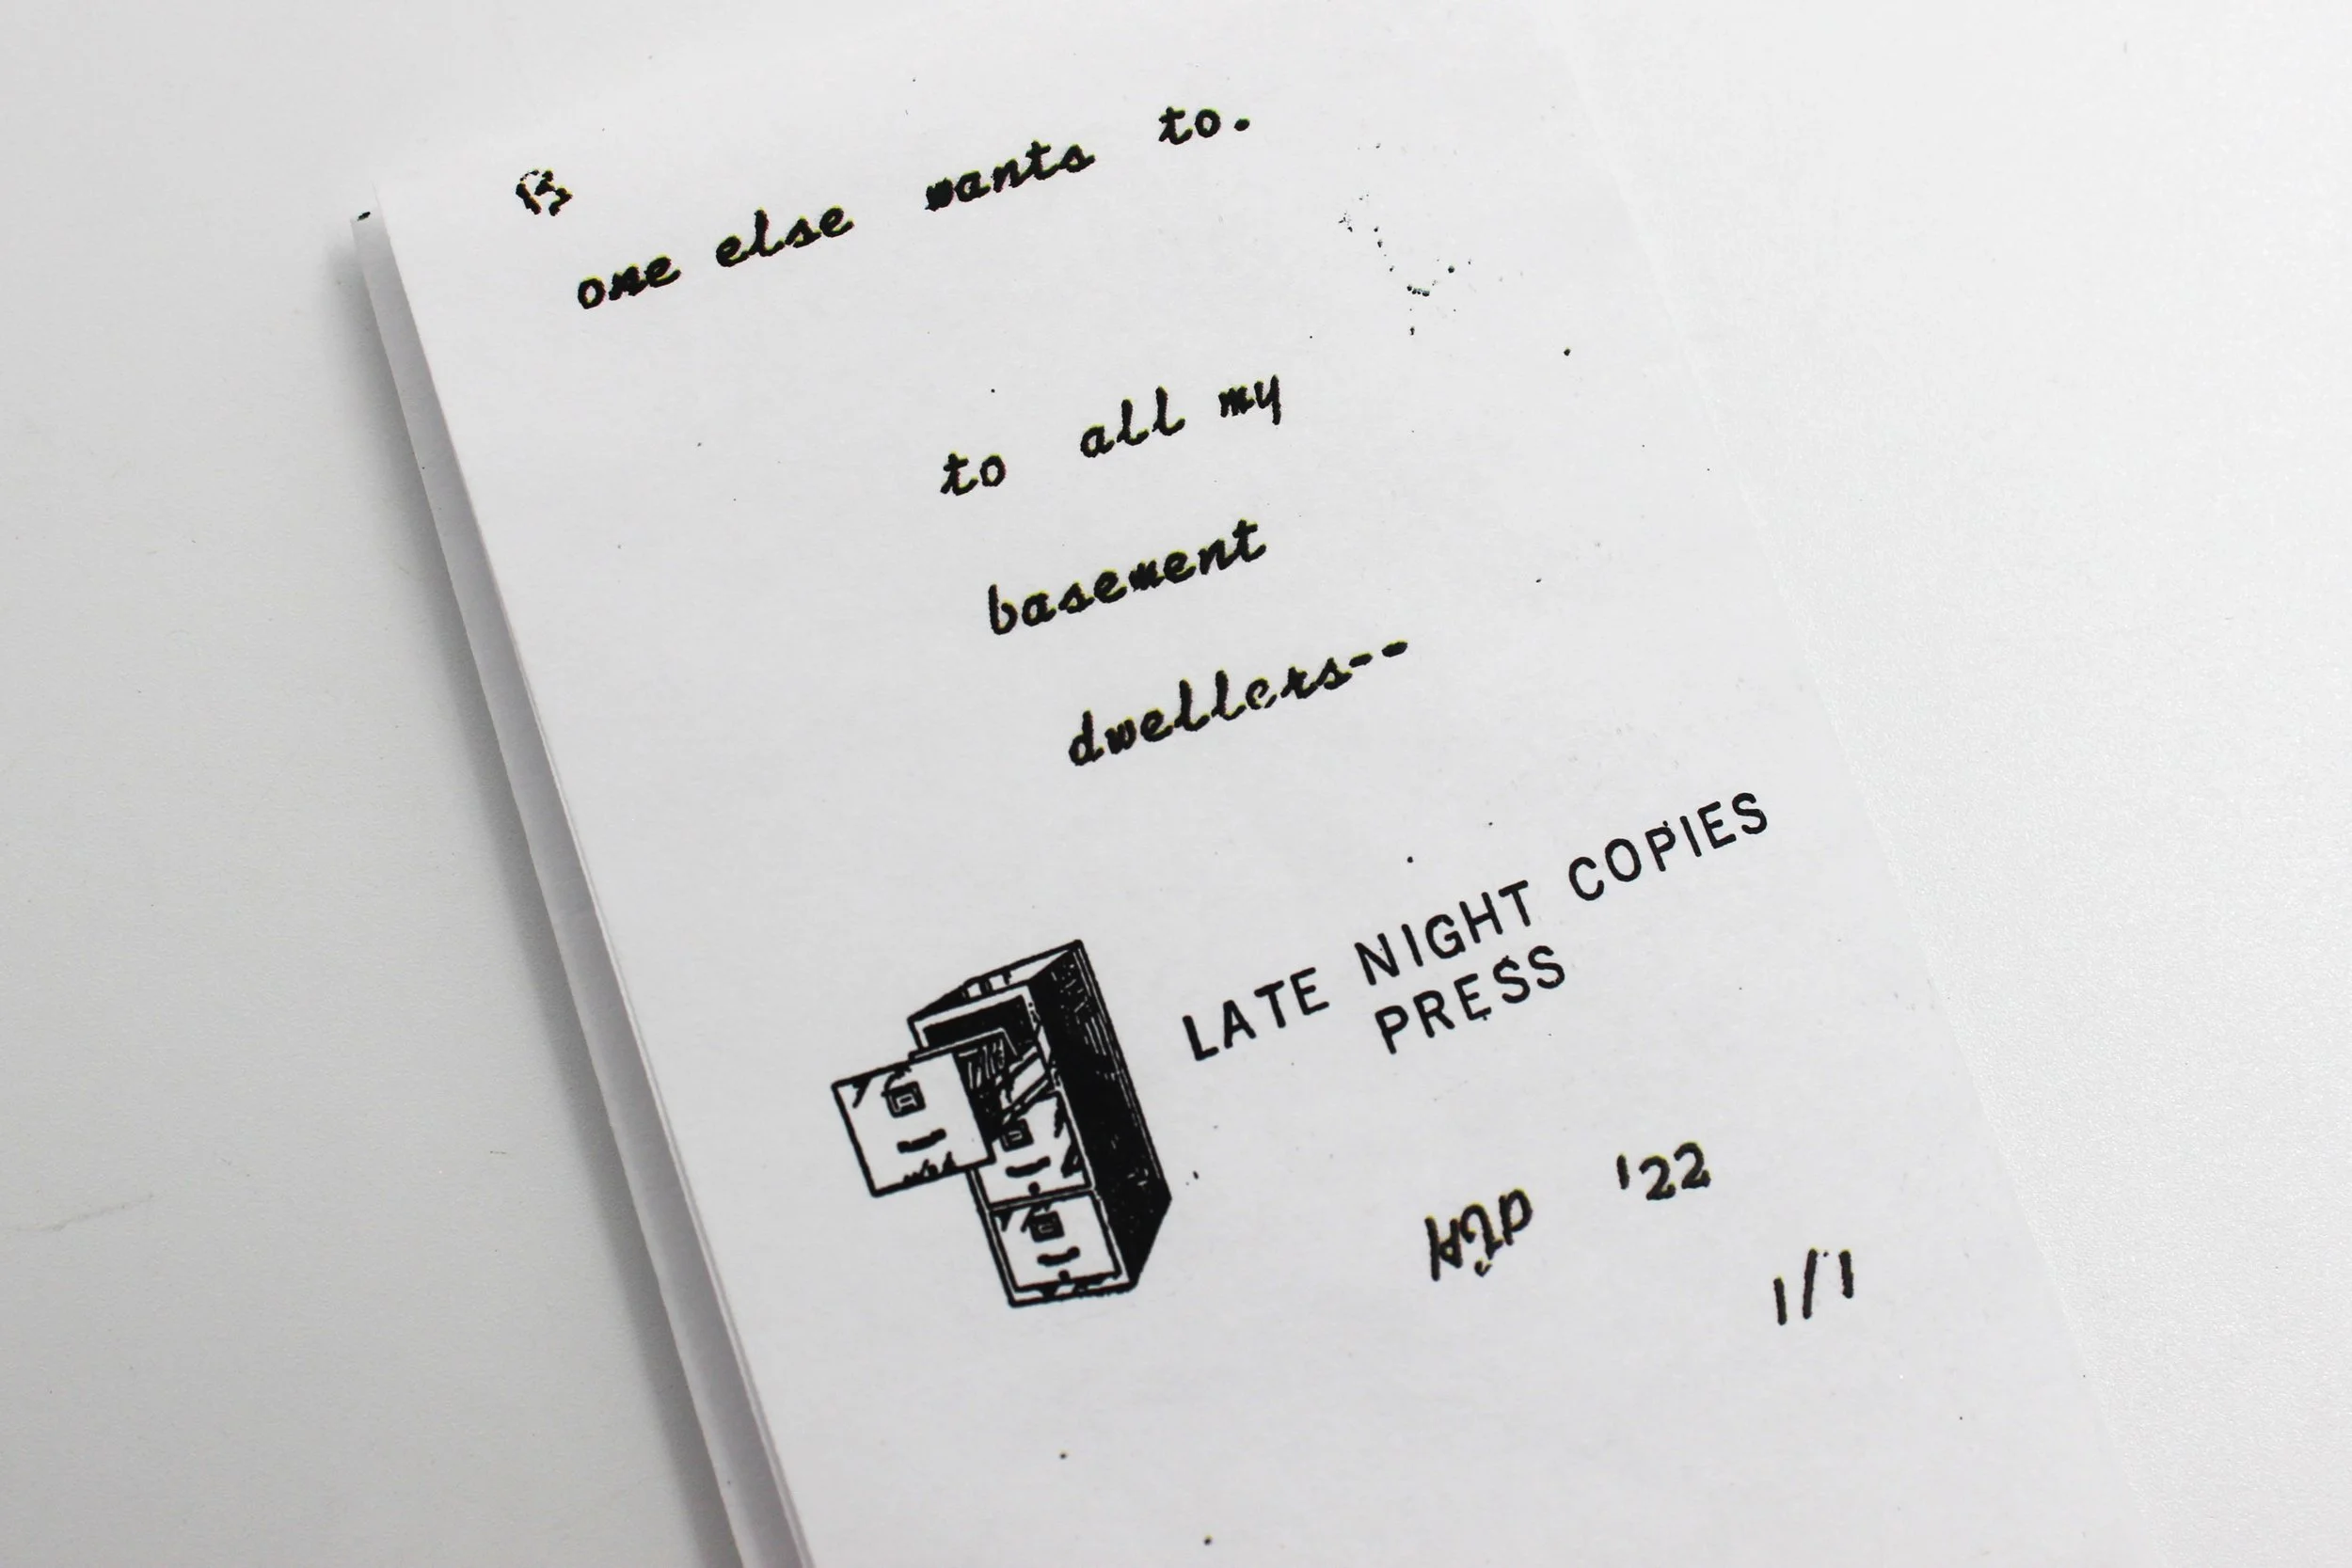 one else wants to.
to all my
basement
dwellers--
LATE NIGHT COPIES
PRESS
'22
1/1